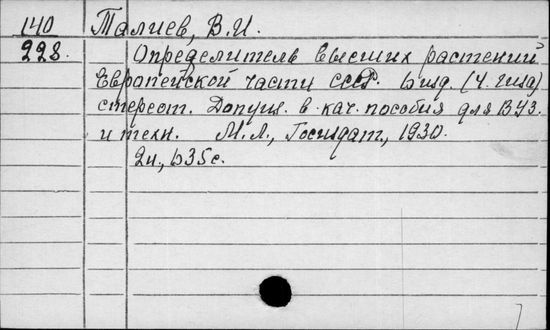 140 Талиев, В.И.
228. Определитель высших растений
Европейской части СССР. 6 изд. (4. гизо)
стереот. Допущ. в кач. пособия для ВУЗ.
и техн. М.Л., Госиздат, 1930.
2н., 635 с.